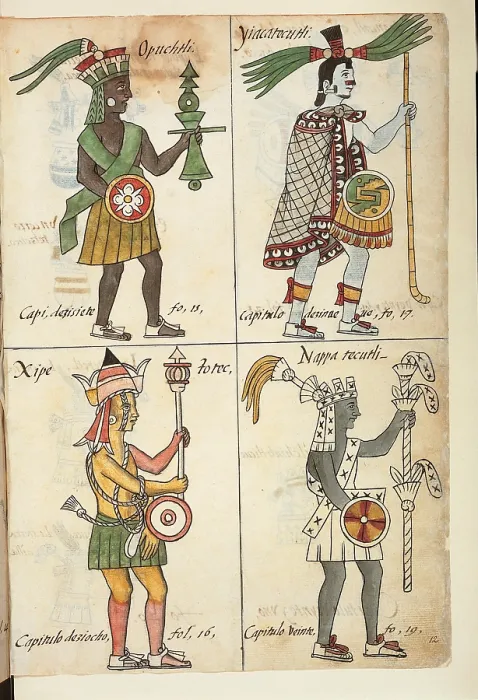 Opuchtli.
Capi, desisiete fo, 15,
Yiacatecutli.
Capitulo desinue ue, fo, 17.
Xipe totec,
Capitulo desiocho, fol, 16,
Nappa tecutli_
Capitulo Veinte, fo, 19,
12